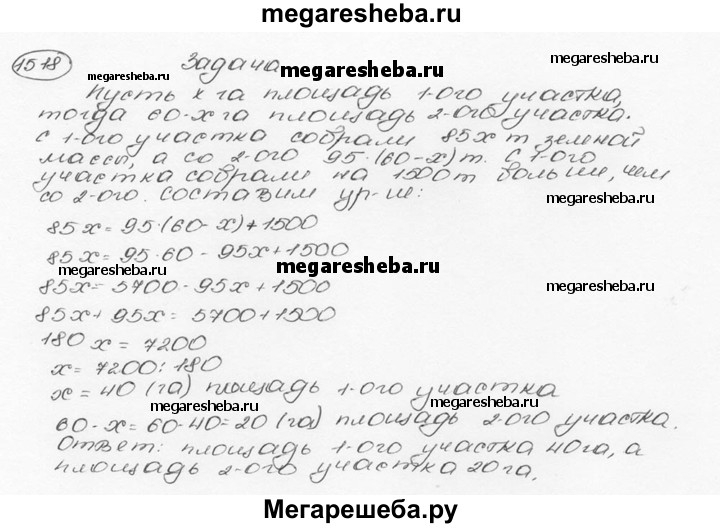 megaresheba.ru
1518 Задача
megaresheba.ru megaresheba.ru megaresheba.ru
Пусть х га площадь 1-ого участка,
тогда 60-х га площадь 2-ого участка.
С 1-ого участка собрали 85х т зеленой
массы, а со 2-ого 95·(60-х)т. С 1-ого
участка собрали на 1500т больше, чем
со 2-ого. Составим ур-ие:
85х=95·(60-х)+1500
85х=95·60-95х+1500
megaresheba.ru megaresheba.ru megaresheba.ru
85х=5700-95х+1500
85х+95х=5700+1500
180х=7200
х=7200:180
х=40 (га) площадь 1-ого участка
megaresheba.ru megaresheba.ru
60-х=60-40=20 (га) площадь 2-ого участка.
Ответ: площадь 1-ого участка 40га, а
площадь 2-ого участка 20га.
Мегарешеба.ру